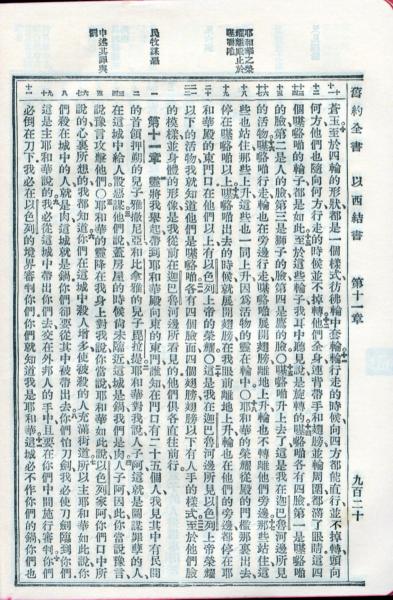 舊約全書 以西結書 第十一章 九百二十
蒼玉至於四輪的形狀都是一個樣式彷彿輪中套輪輪行走的時候向四方都能直行並不掉轉頭向
何方他們也隨向何方行走的時候並不掉轉他們全身連背帶手和翅膀並輪周圍都滿了眼睛這四
個嘰嚕啪的輪子都是如此至於這些輪子我耳中聽見說是旋轉的嘰嚕啪各有四臉第一是嘰嚕啪
的臉第二是人的臉第三是獅子的臉第四是鷹的臉〇嘰嚕啪升上去了這是我在迦巴魯河邊所見
的活物嘰嚕啪行走輪也在旁邊行走嘰嚕啪展開翅膀離地上升輪也不轉離他們旁邊那些站住這
些也站住那些上升這些也一同上升因爲活物的靈在輪中〇耶和華的榮耀從殿的門檻那裏出去
停在嘰嚕啪以上嘰嚕啪出去的時候就展開翅膀在我眼前離地上升輪也在他們的旁邊都停在耶
和華殿的東門口在他們以上有以色列上帝的榮耀〇這是我在迦巴魯河邊所見以色列上帝榮耀
以下的活物我就知道他們是嘰嚕啪各有四個臉面四個翅膀翅膀以下有人手的樣式至於他們臉
的模樣並身體的形像是我從前在迦巴魯河邊所看見的他們俱各直往前行
第十一章 靈將我舉起帶到耶和華殿向東的東門誰知在門口有二十五個人我見其中有民間
的首領押朔的兒子雅撒尼亞和比拿雅的兒子毘拉提耶和華對我說人子阿這就是圖謀罪孽的人
在這城中給人設惡謀他們說蓋房屋的時候尚未臨近這城是鍋我們是肉人子阿因此你當說豫言
說豫言攻擊他們〇耶和華的靈降在我身上對我說你當說耶和華如此說以色列家阿你們口中所
說的心裏所想的我都知道你們在這城中殺人增多使被殺的人充滿街道所以主耶和華如此說你
們殺在城中的人就是肉這城就是鍋你們卻要從其中被帶出去你們怕刀劍我必使刀劍臨到你們
這是主耶和華說的我必從這城中帶出你們去交在外邦人的手中且要在你們中間施行審判你們
必倒在刀下我必在以色列的境界審判你們你們就知道我是耶和華這城必不作你們的鍋你們也
耶和華之榮
耀離殿止於
嘰嚕啪
民牧謀惡
申述其罪與